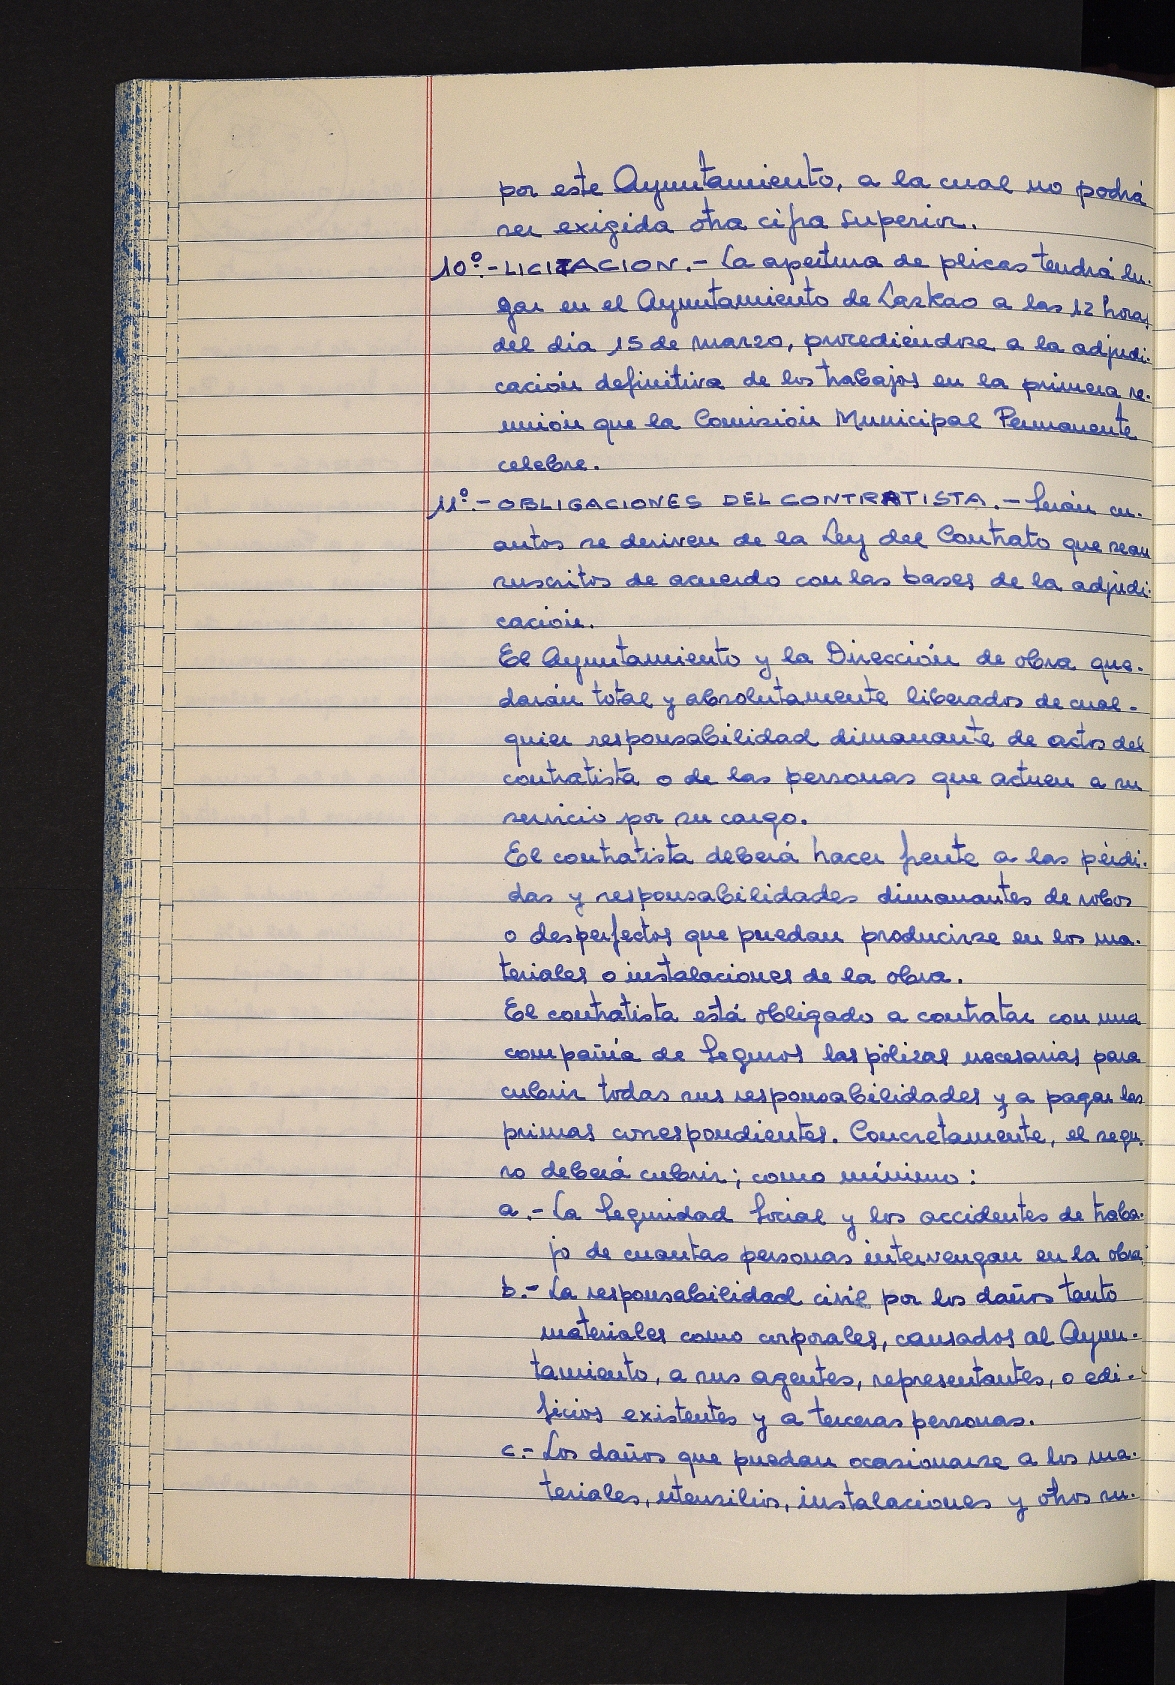 por este Ayuntamiento, a la cual no podrá
ser exigida otra cifra superior.
10º.- LICITACION.- La apertura de plicas tendrá lu-
gar en el Ayuntamiento de Lazkao a las 12 horas
del dia 15 de marzo, procediéndose a la adjudi-
cación definitiva de los trabajos en la primera re-
unión que la Comisión Municipal Permanente
celebre.
11º.- OBLIGACIONES DEL CONTRATISTA.- Serán cu-
antos se deriven de la Ley del Contrato que sean
suscritos de acuerdo con las bases de la adjudi-
cación.
El Ayuntamiento y la Dirección de obra que-
darán total y absolutamente liberados de cual-
quier responsabilidad dimanante de actos del
contratista o de las personas que actuen a su
servicio por su cargo.
El contratista deberá hacer frente a las pérdi-
das y responsabilidades dimanantes de robos
o desperfectos que puedan producirse en los ma-
teriales o instalaciones de la obra.
El contratista está obligado a contratar con una
compañía de Seguros las pólizas necesarias para
cubrir todas sus responsabilidades y a pagar las
primas correspondientes. Concretamente, el segu-
ro deberá cubrir; como mínimo:
a.- La Seguridad Social y los accidentes de traba-
jo de cuantas personas intervengan en la obra
b.- La responsabilidad civil por los daños tanto
materiales como corporales, causados al Ayun-
tamiento, a sus agentes, representantes, o edi-
ficios existentes y a terceras personas.
c.- Los daños que puedan ocasionarse a los ma-
teriales, utensilios, instalaciones y otros su-